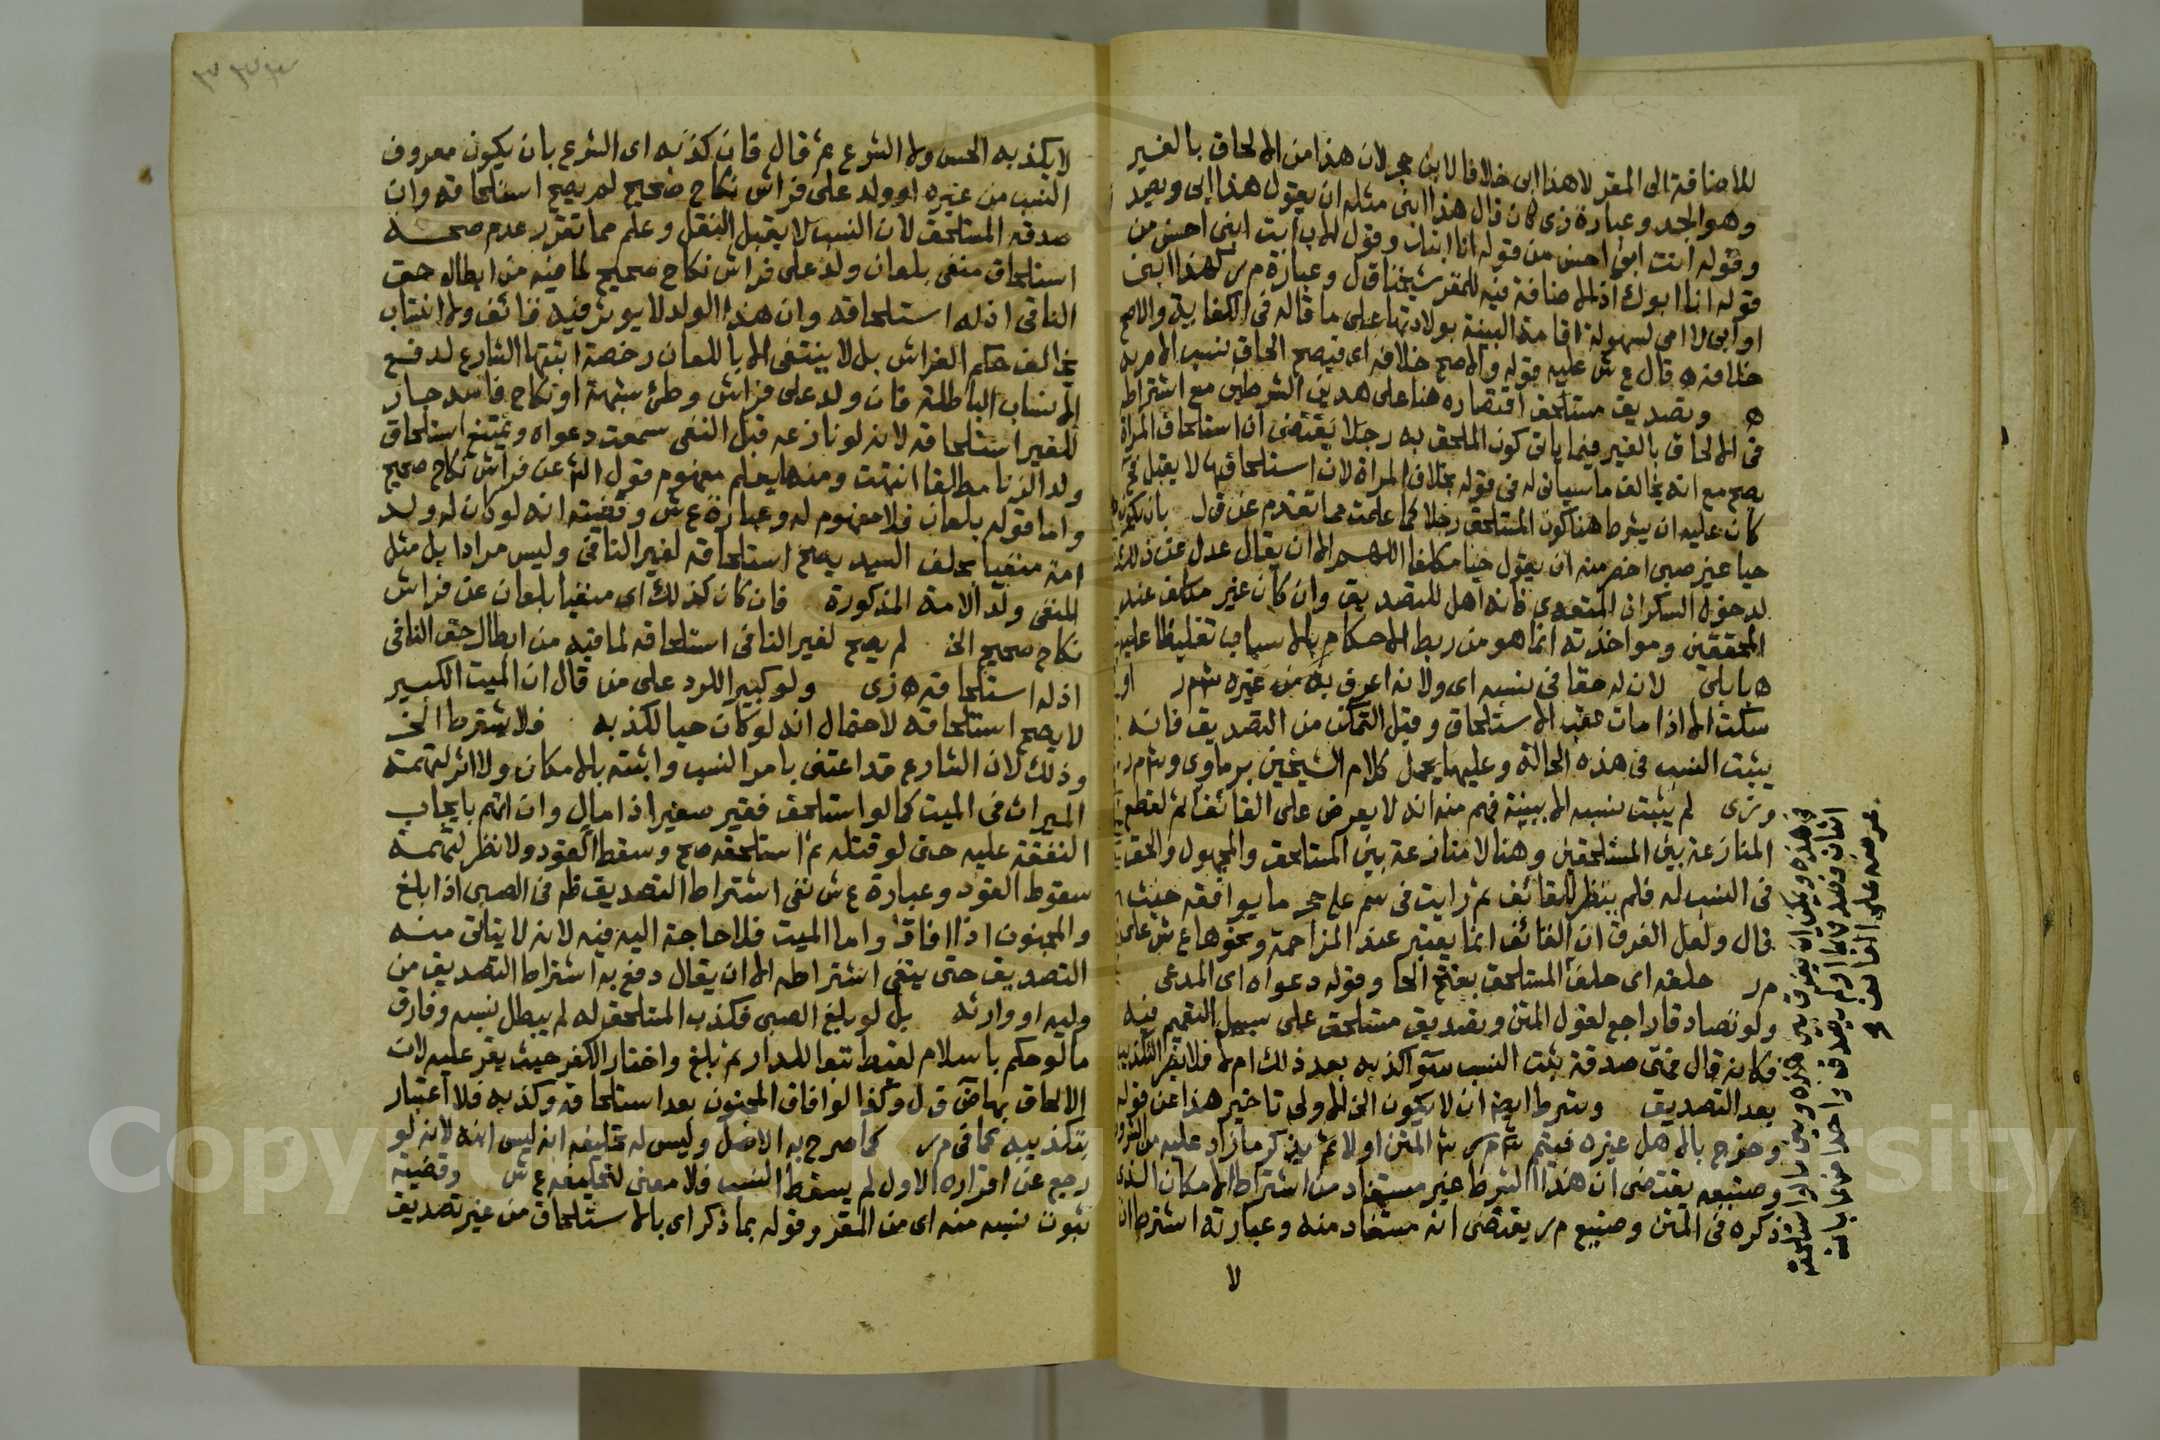 للاضافة الى المقر لا هذا ابى خلافا لابن حجر لان هذا من الالحاق بالغير
وهو الجد وعبارة زى كان قال هذا ابنى مثله ان يقول هذا ابى ويصيد
وقوله انت ابى احسن من قوله انا ابنك وقول الاب انت ابنى احسن من
قوله انا ابوك اذ الاضافة فيه للمقر شيخنا ق ل وعبارة م ر كهذا ابى
او ابى لا امى لسهولة اقامة البينة بولادتها على ما قاله فى الكفاية والاصح
خلافه ه قال ع ش عليه قوله والاصح خلافه اى فيصح الحاق نسب الام به
ه وتصديق مستلحق اقتصاره هنا على هذين الشرطين مع اشتراط
فى الالحاق بالغير فيما ياتى كون الملحق به رجلا يقتضى ان استلحاق المراة
يصح مع انه يخالف ما سياتى له فى قوله بخلاف المراة لان استلحاقها لا يقبل
كان عليه ان يشرط هنا كون المستلحق رجلا كما علمت مما تقدم عن ق ل بان يكون
حيا غير صبى اخصر منه ان يقول حيا مكلفا اللهم الا ان يقال عدل عن ذلك
لدخول السكران المتعدى فانه اهل للتصديق وان كان غير مكلف عند
المحققين ومواخذته انما هو من ربط الاحكام بالاسباب تغليظا عليه
ه بابلى لان له حقا فى نسبه اى ولانه اعرف به من غيره ش م ر او
سكت الا اذا مات عقب الاستلحاق وقبل التمكن من التصديق فانه
يثبت النسب فى هذه الحالة وعليها يحمل كلام الشيخين برماوى وش م ر
وزى لم يثبت نسبه الا ببينة فهم منه انه لا يعرض على القائف ثم لقطع
المنازعة بين المستلحقين وهنا لا منازعة بين المستلحق والمجهول والحق
فى النسب له فلم ينظر للقائف ثم رايت فى سم على حج ما يوافقه حيث
قال ولعل الفرق ان القائف انما يعتبر عند المزاحمة ونحوها ع ش على
م ر حلفه اى حلف المستلحق بفتح الحا وقوله دعواه اى المدعى
ولو تصادقا راجع لقول المتن وتصديق مستلحق على سبيل التعميم فيه
فكانه قال فمتى صدقه ثبت النسب سوآ كذبه بعد ذلك ام لا فلا يضر التكذيب
بعد التصديق وشرط ايضا ان لا يكون الخ الاولى تاخير هذا عن قوله
وخرج بالاهل غيره فيتم ش م ر ش المتن اولا ثم يذكر ما زاد عليه من
وصنيعه يقتضى ان هذا الشرط غير مستفاد من اشتراط الامكان الذى
ذكره فى المتن وصنيع م ر يقتضى انه مستفاد منه وعبارته اشتراط ان
لا
لا يكذبه الحس ولا الشرع ثم قال فان كذبه اى الشرع بان يكون معروف
النسب من غيره او ولد على فراش نكاح صحيح لم يصح استلحاقه وان
صدقه المستلحق لان النسب لا يقبل النقل وعلم مما تقرر عدم صحـــة
استلحاق منفى بلعان ولد على فراش نكاح صحيح لما فيه من ابطاله حق
النافى اذ له استلحاقه وان هذا الولد لا يوثر فيه قائف ولا انتساب
يخالف حكم الفراش بل لا ينتفى الا باللعان رخصة اثبتها الشارع لدفع
الانساب الباطلة فان ولد على فراش وطئ شبهة او نكاح فاسد جاز
للغير استلحاقه لانه لو نازعه قبل النفى سمعت دعواه ويمتنع استلحاق
ولد الزنا مطلقا انتهت ومنها يعلم مفهوم قول الش عن فراش نكاح صحيح
واما قوله بلعان فلا مفهوم له وعبارة ع ش وقضيته انه لو كان له ولد
امة منفيا بحلف السيد يصح استلحاقه لغير النافى وليس مرادا بل مثل
المنفى ولد الامة المذكورة فان كان كذلك اى منفيا بلعان عن فراش
نكاح صحيح الخ لم يصح لغير النافى استلحاقه لما فيه من ابطال حق النافى
اذ له استلحاقه ه زى ولو كبيرا للرد على من قال ان الميت الكبير
لا يصح استلحاقه لاحتمال انه لو كان حيا لكذبه فلا يشترط الخ
وذلك لان الشارع قد اعتنى بامر النسب واثبته بالامكان ولا اثر لتهمة
الميراث فى الميت كما لو استلحق فقير صغيرا ذا مال وان اتهم بايجاب
النفقة عليه حتى لو قتله ثم استلحقه صح وسقط القود ولا نظر لتهمة
سقوط القود وعبارة ع ش نفى اشتراط التصديق ظ فى الصبى اذا بلغ
والمجنون اذا افاق واما الميت فلا حاجة اليه فيه لانه لا يتاتى منه
التصديق حتى ينفى اشتراطه الا ان يقال دفع به اشتراط التصديق من
وليه او وارثه بل لو بلغ الصبى فكذب المستلحق له لم يبطل نسبه وفارق
ما لو حكم باسلام لقيط تبعا للدار ثم بلغ واختار الكفر حيث يقر عليه لان
الالحاق بهاض ق ل وكذا لو افاق المجنون بعد استلحاقه وكذبه فلا اعتبار
بتكذيبه كما فى م ر كما صرح به الاصل وليس له تحليفه انه ليس ابنه لانه لو
رجع عن اقراره الاول لم يسقط النسب فلا معنى لتحليفه ع ش وقضية
ثبوت نسبه منه اى من المقر وقوله بما ذكر اى بالاستلحاق من غير تصديق